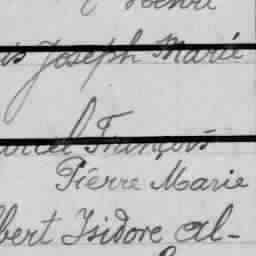 Henri
is Joseph Marie
arcel François
Pierre Marie
bert Isidore Al-